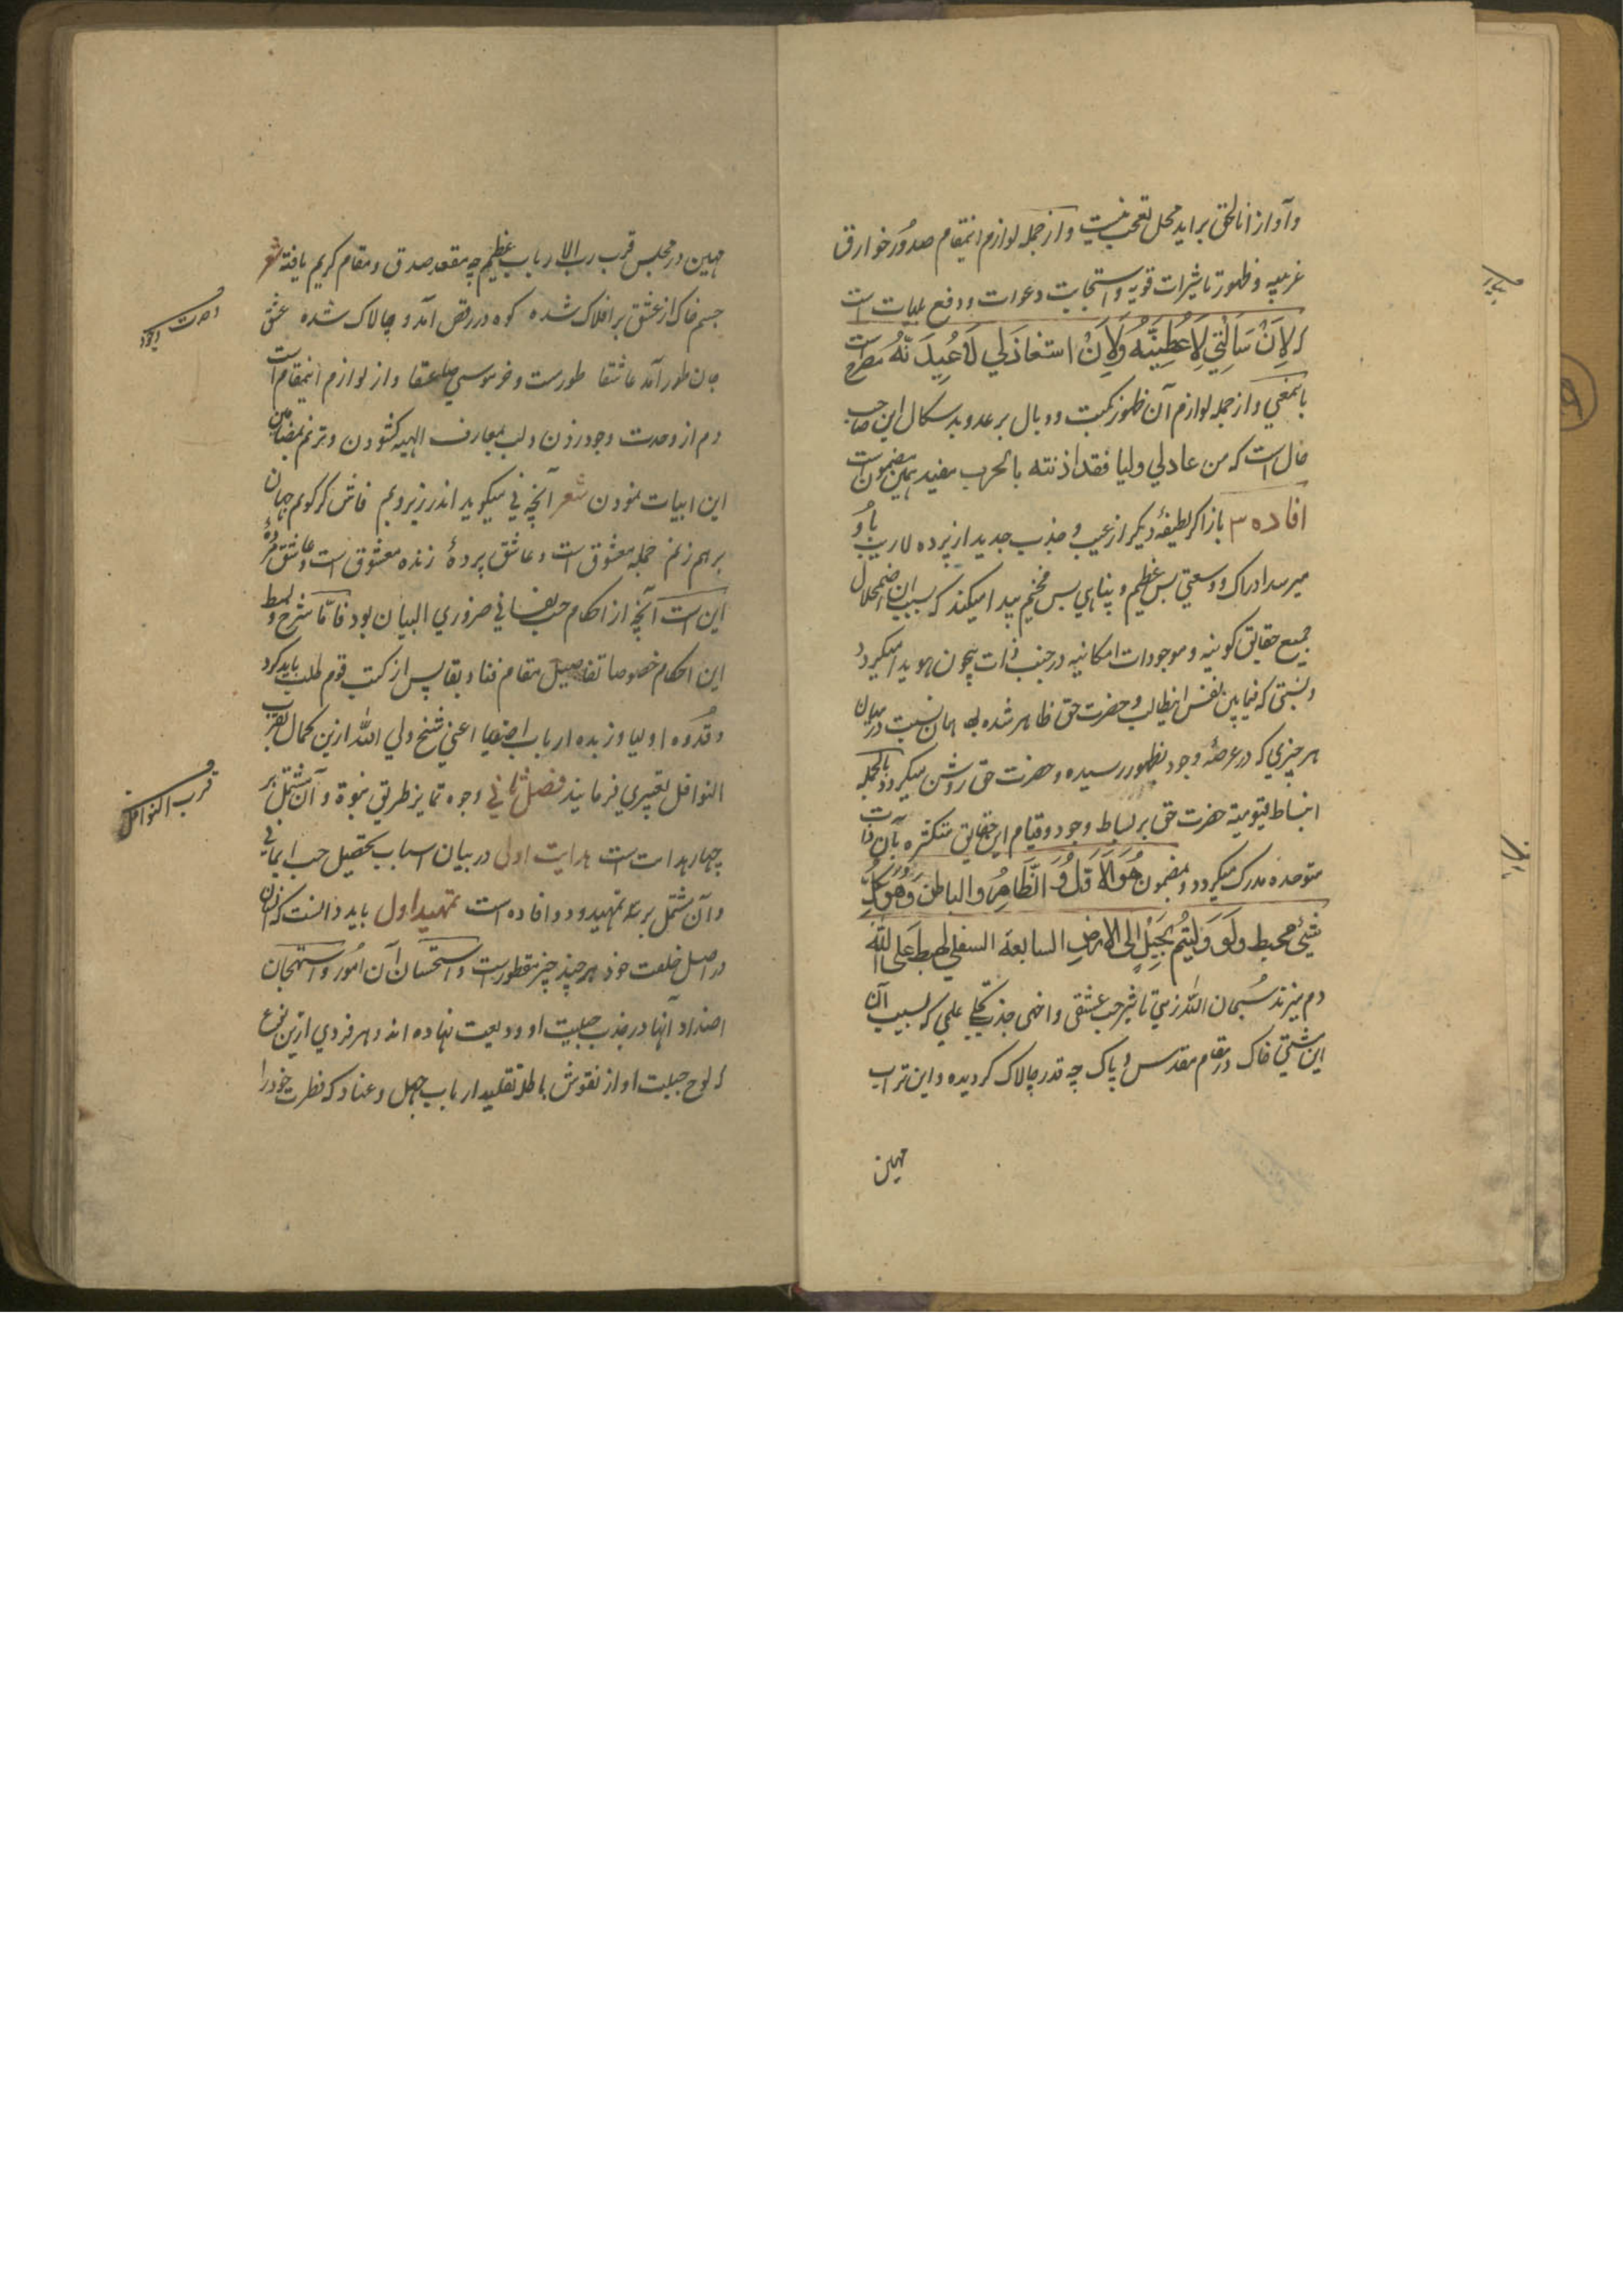 وآواز انا الحق براید محل تعجب نیست واز جمله لوازم اینمقام صدور خوارق
غریبه وظهور تاثیرات قویه واستجابت دعوات ودفع بلیات است
که لاِن سَالَنِي لاُعطِیَنَّهُ وَلاِنْ استعاذَنِي لاُعِیذَنَّهُ مصرح است
باینمعني واز جمله لوازم آن ظهور نکبت ووبال بر عدو بدسکال این صاحب
حال است که من عادلي ولیا فقد اذنته بالحرب مفید همین مضمون است
افاده ۳ باز اکر لطیفهٔ دیکر از غیب وجذب جدید از پرده لاریب باو
میرسد ادراک ووسعتي بس عظیم وپناهي بس مخیم پیدا میکند که بسبب ان اضمحلال
جمیع حقایق کونیه وموجودات امکانیه در جنب ذات بیچون هویدا میکردد
ونسبتي که فیما بین نفس اینطالب وحضرت حق ظاهر شده بود همان نسبت در میان
هر چیزي که در عرصهٔ وجود بظهور رسیده وحضرت حق روشن میکردد بالجمله
انبساط قیومیة حضرت حق بر بساط وجود وقیام این حقایق متکثره بآن ذات
متوحده مدرک میکردد وبمضمون هُوَ الاَوَّلُ وَالآخِرُ وَالظَّاهِرُ والباطن وَهُوَ بِکُلِّ
شَیْئٍ محیط ولَوْ دَلَّیتُم بِحَبْلٍ اِلَی الاَرضِ السابعة السفلي لهبط عَلَی اللّٰه
دم میزند سُبحان اللّٰه زهي تاثیر حب عشقي واخهي جذب تجلي علمي که بسبب آن
این مشتي خاک در مقام مقدس وپاک چه قدر چالاک کردیده واین تراب
مهین
مهین در مجلس قرب رب الارباب عظیم چه مقعد صدق ومقام کریم یافته شعر
جسم خاک از عشق بر افلاک شده کوه در رقص آمد وچالاک شده عشق
جان طور آمد عاشقا طور مست وخر موسي صعقا واز لوازم اینمقام است
دم از وحدت وجود زدن ولب بمعارف الهیه کشودن وترنم بمضامین
این ابیات نمودن شعر آنچه ني میکوید اندر زیر وبم فاش کر کویم جهان
بر هم زنم جمله معشوق است وعاشق پردهٔ زنده معشوق است وعاشق مردهٔ
این است آنچه از احکام حب نفساني ضروري البیان بود فاما شرح وبسط
این احکام خصوصا تفاصیل مقام فنا وبقا پس از کتب قوم طلب باید کرد
وقُدوه اولیا وزبده ارباب اصفیا اعني شیخ ولي اللّٰه ازین کمال بقرب
النوافل تعبیر میفرمایند فصل ثاني در وجوه تمایز طریق نبوة وآن مشتمل بر
چهار هدایت است هدایت اولی در بیان اسباب تحصیل حب ایماني
وآن مشتمل بر سه تمهید ودو افاده است تمهید اول باید دانست که انسان
در اصل خلقت خود بر چند چیز مفطور است واستحسان آن امور واستهجان
اضداد آنها در جذر جبلیت او ودیعت نهاده اند وهر فردي ازین نوع
که لوح جبلیت او از نقوش باطله تقلید ارباب جهل وعناد که فطرت خود را
وحدت وجود
قرب النوافل